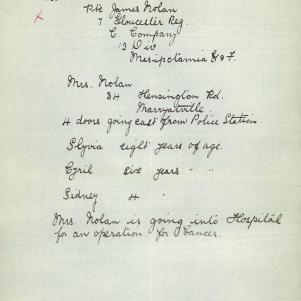 Pte James Nolan
7 Gloucester Reg.
C. Company
13 Div
Mesipotamia
Mrs. Nolan
34 Kensington Rd.
Marryatville
4 doors going east from Police Station.
Slyvia eight years of age.
Cyril six years " "
Sidney 4 " "
Mrs. Nolan is going into Hospital
for an operation for Cancer.